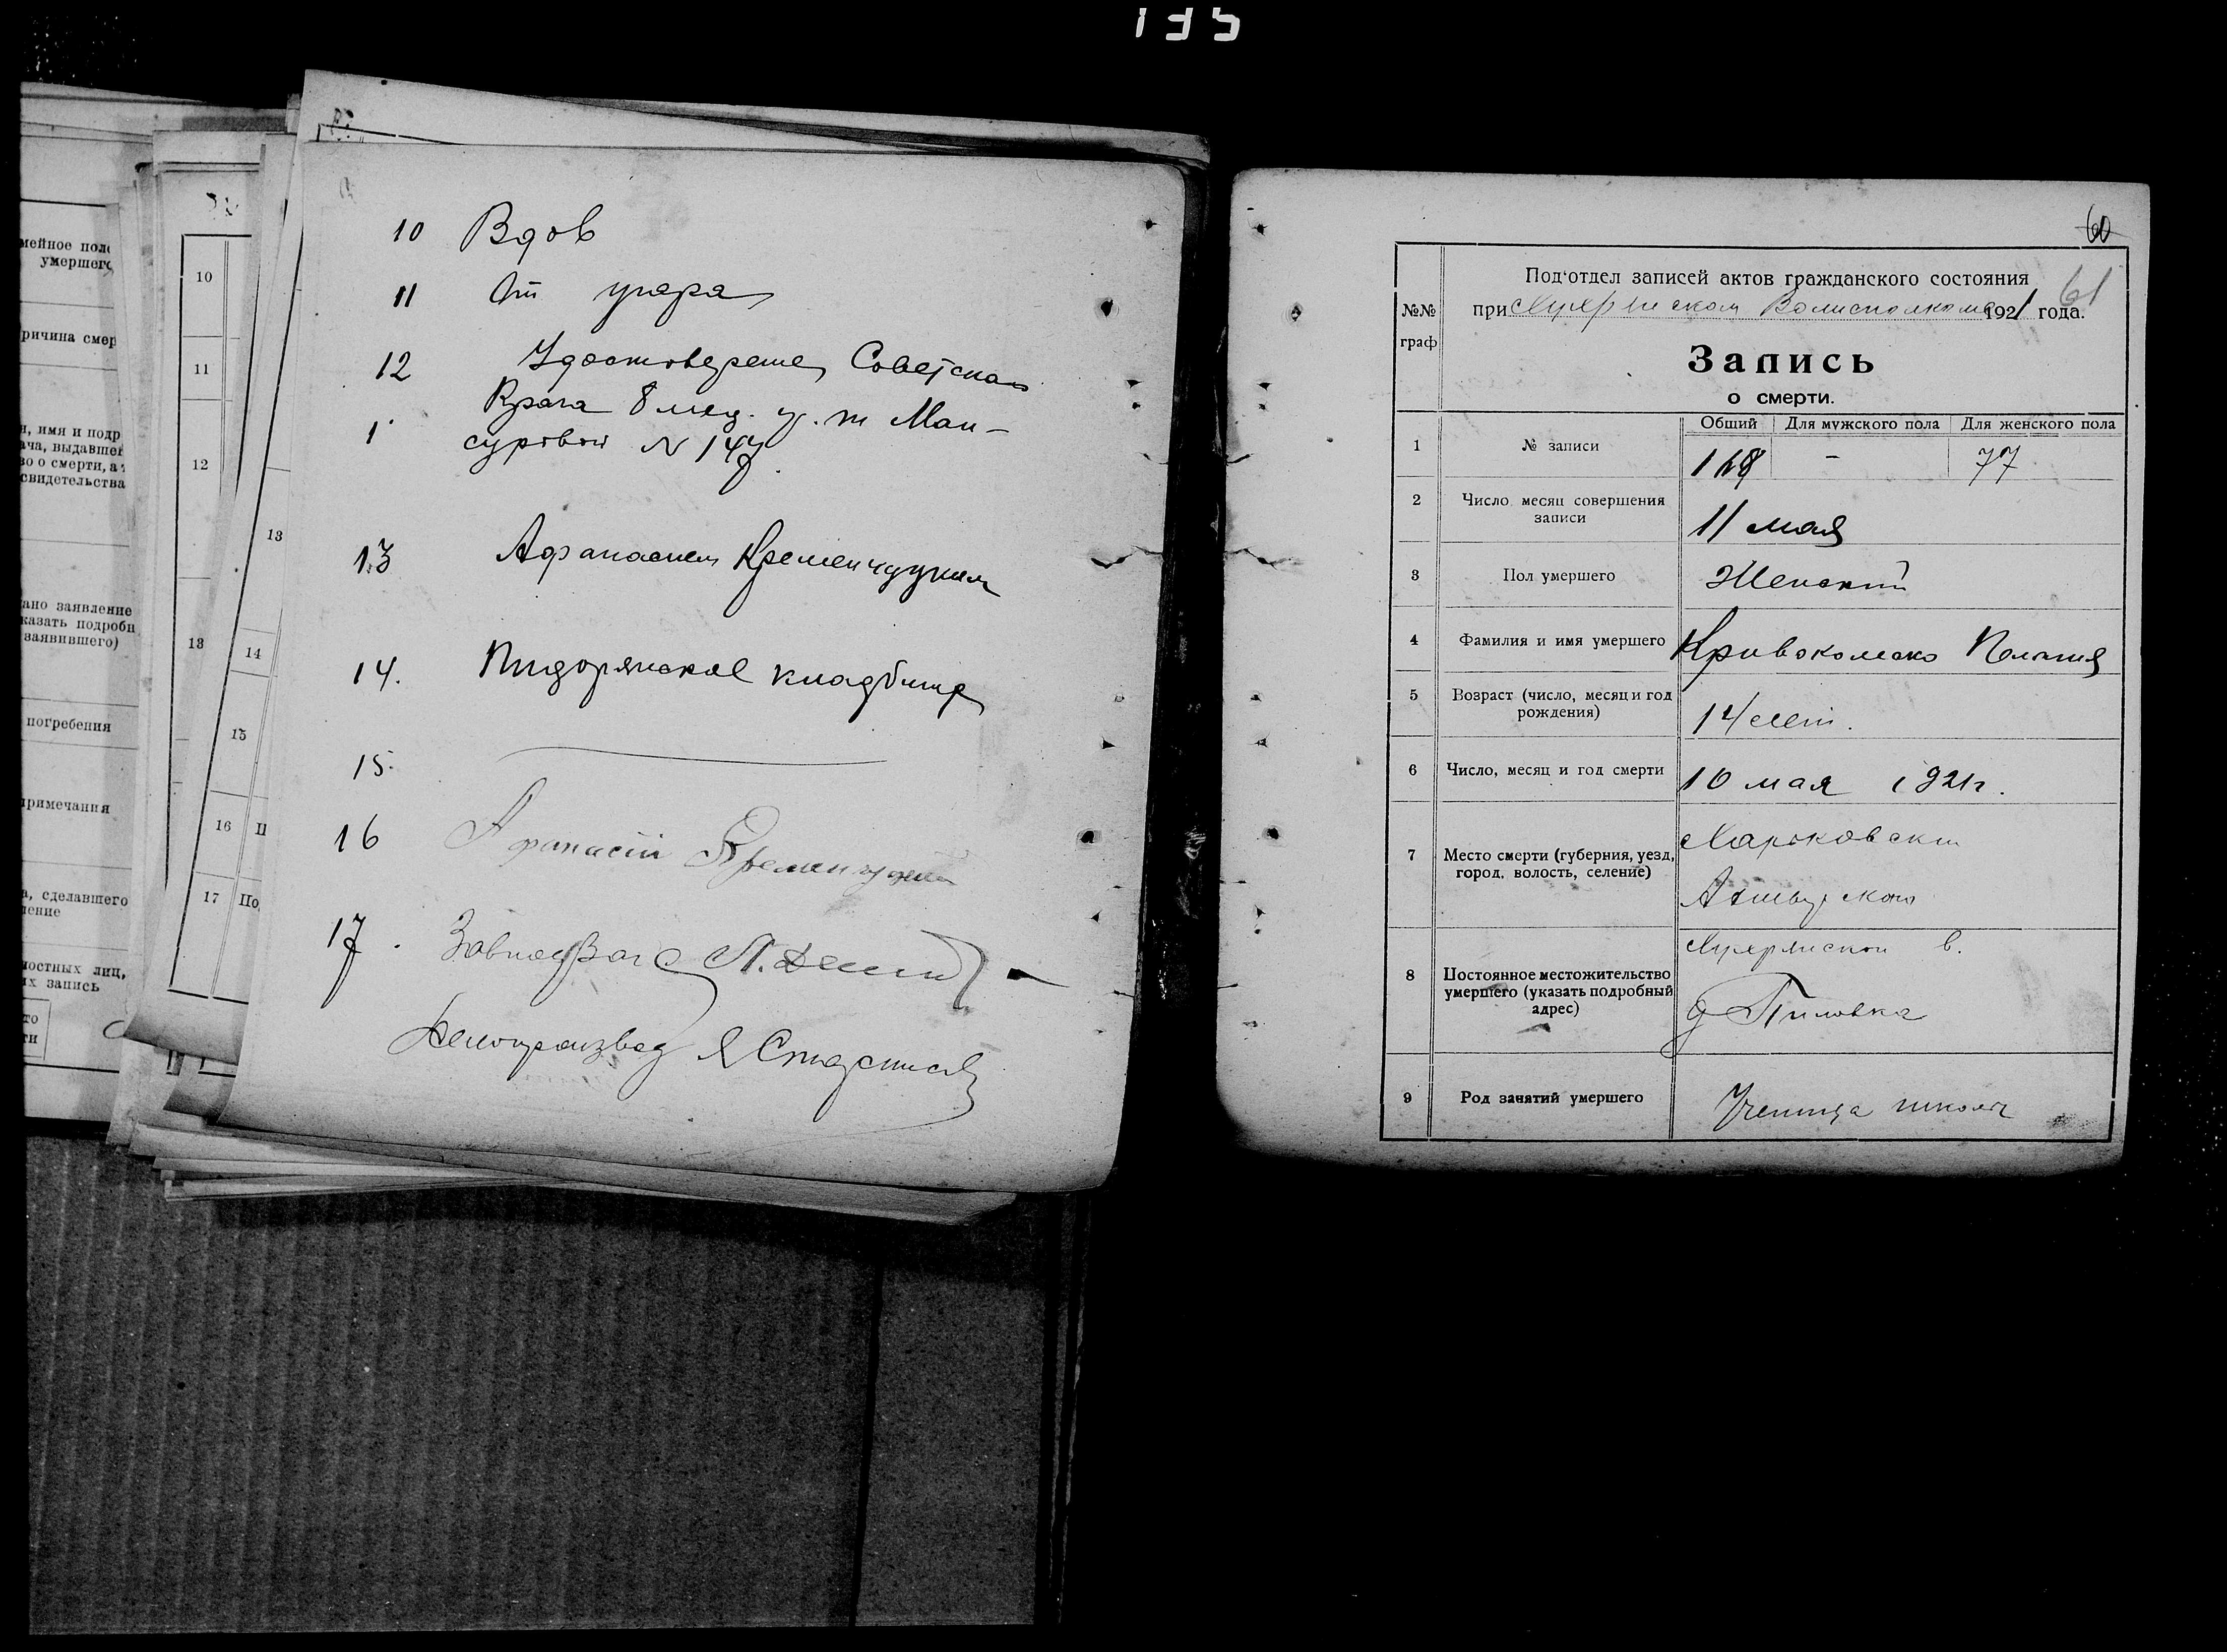 135
мейное поло
умершего
ричина смер
я, имя и подр
ача, выдавшег
во о смерти, а з
свидетельства
ано заявление
казать подробн
заявившего)
погребения
римечания
а, сделавшего
ление
ностных лиц,
их запись
то
ти
10
11
12
13
13
14
15
16 П
17 По
10 Вдов
11 От угара
12 Удостоверение Советская
Врача 8 мед. уч. т Ман-
суровой N 147
13 Афанасием Кременчуцким
14. кладбище
15.
16 Афанасий Кременчуцкий
17.
Делопроизвод
60
61
№№
граф
Под‘отдел записей актов гражданского состояния
при Волисполкоме 1921 года.
Запись
о смерти.
Общий Для мужского пола Для женского пола
1 № записи 168 – 77
2 Число месяц совершения
записи
11 мая
3 Пол умершего Женский
4 Фамилия и имя умершего Пелагия
5 Возраст (число, месяц и год
рождения)
14 лет.
6 Число, месяц и год смерти 10 мая 1921 г.
7 Место смерти (губерния, уезд,
город, волость, селение)
Харьковской
Ахтырского
8 Постоянное местожительство
умершего (указать подробный
адрес)
в.
д Пиловка
9 Род занятий умершего Ученица школы